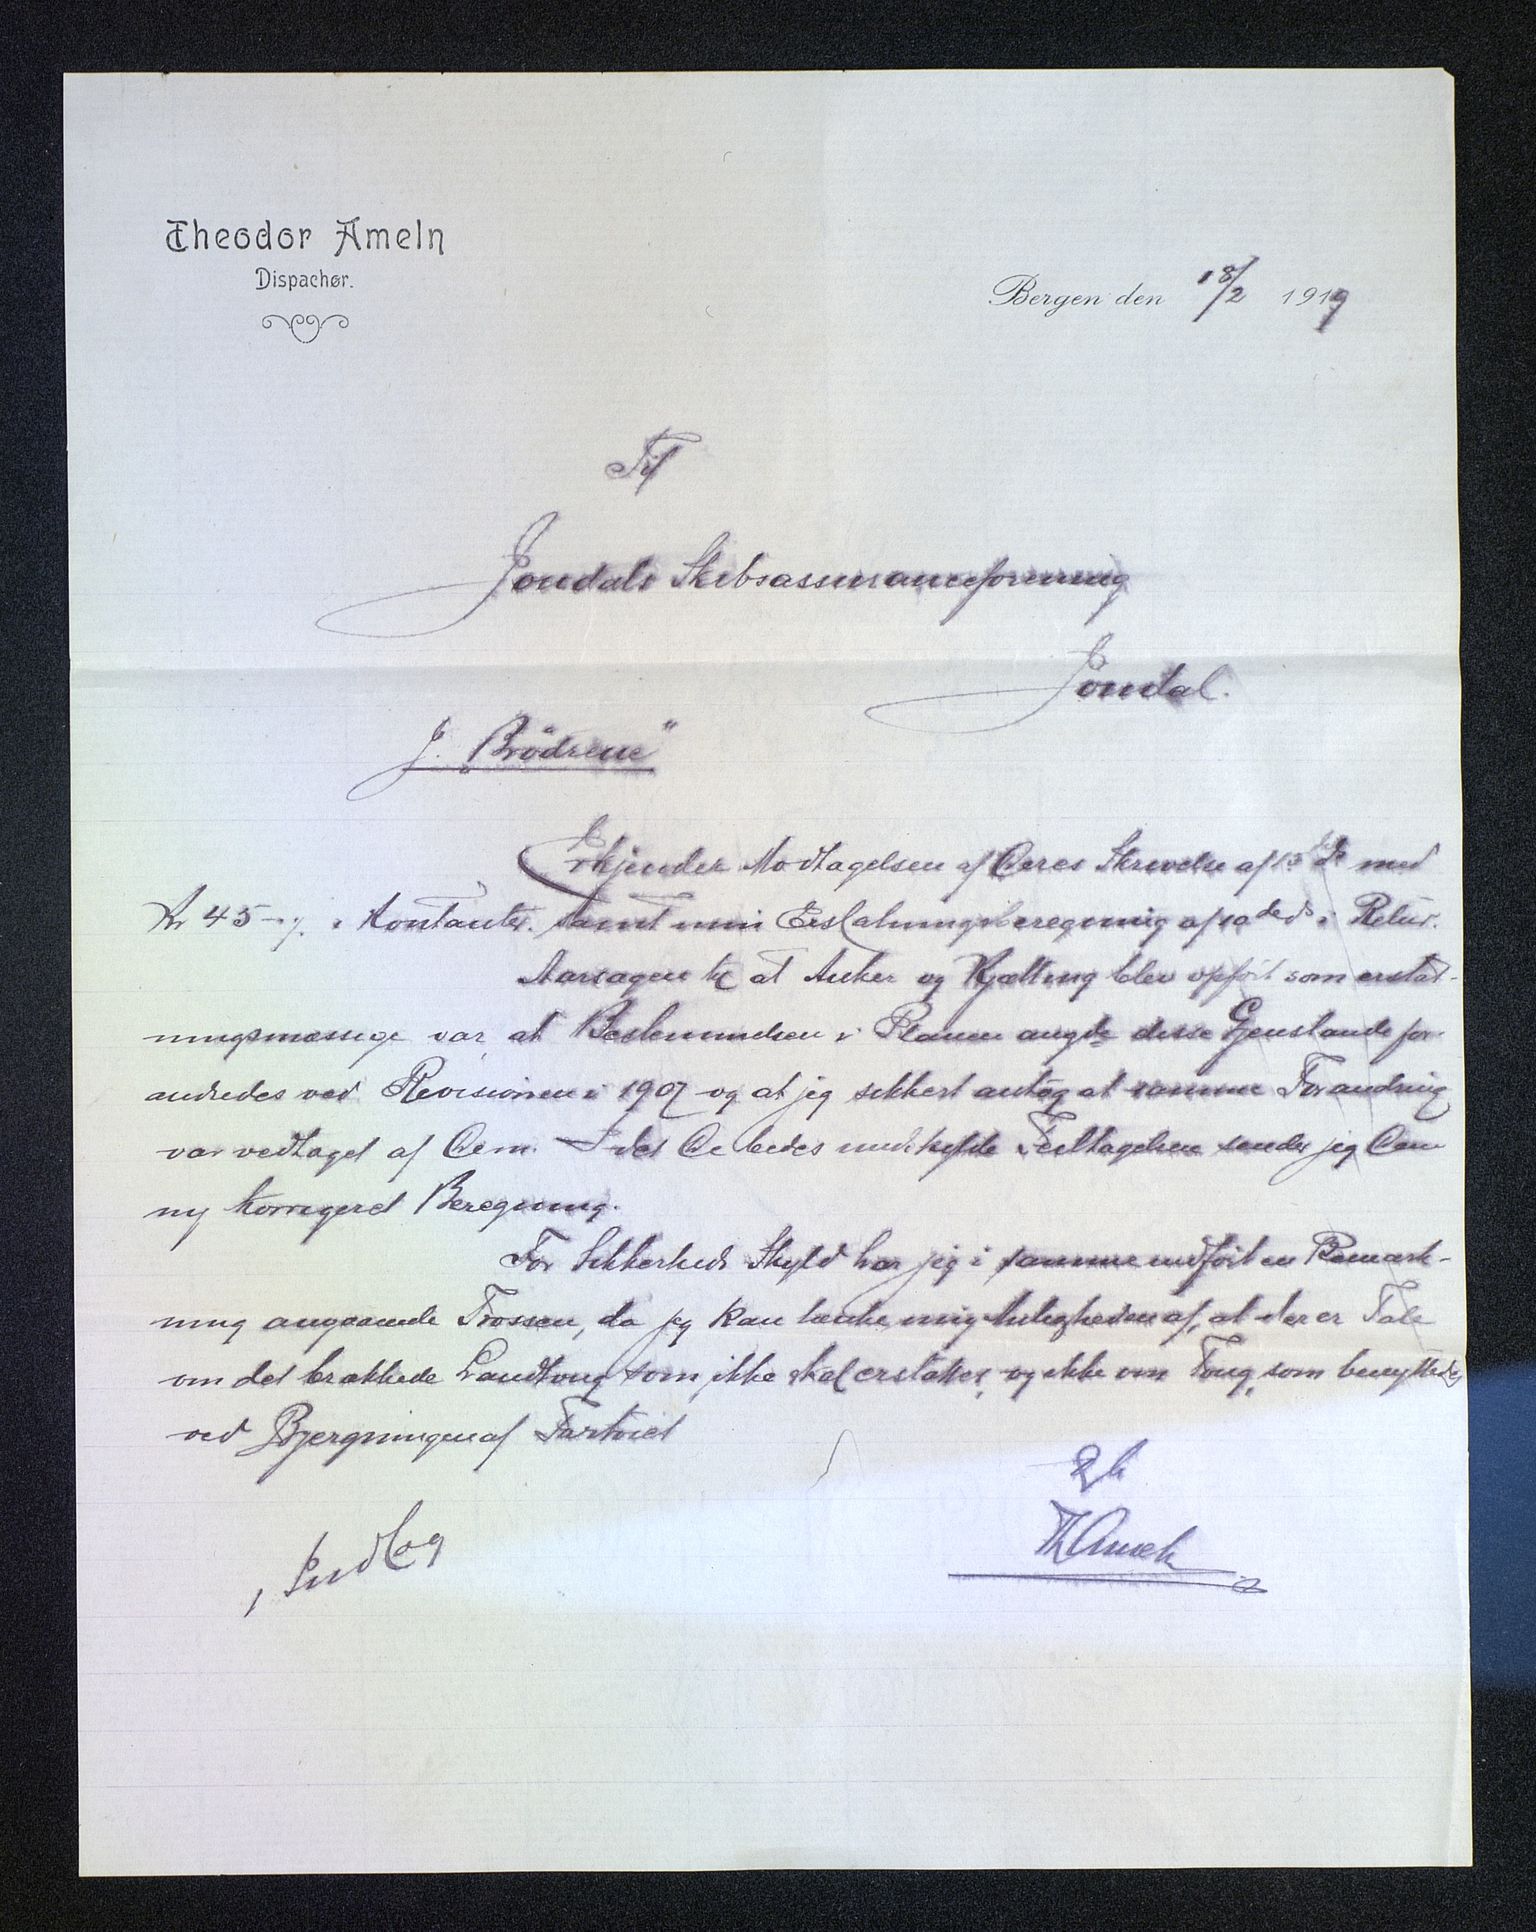 Theodor Ameln
Dispachør.
Bergen den 18/2 1919
Til
Jondals Skibsassuranceforening
Jondal.
J. „Brödrene"
Erkjender Modtagelsen af Deres Skrivelse af 15 de med
Kr 45 -,, i Kontanter. samt min Erstatningsberegning af 10 ded. i Retur.
Aarsagen til at Anker og Kjætting blev opfört som erstat-
ningsmæssige var, at Bestemmelsen i Planen angde disse Gjenstande for-
andredes ved Revisionen i 1907 og at jeg sikkert antog at samme Forandring
var vedtaget af Dem. Idet De bedes undskylde Feiltagelsen sender jeg Dem
ny korrigeret Beregning.
For Sikkerheds Skyld har jeg i samme indfört en Bemærk-
ning angaaende Trossen, da jeg kan tænke mig Muligheden af, at der er Tale
om det brækkede Landtoug som ikke skal erstattes, og ikke om Toug, som benyttedes
ved Bjergningen af Fartöiet
Th Ameln
1 Indlag